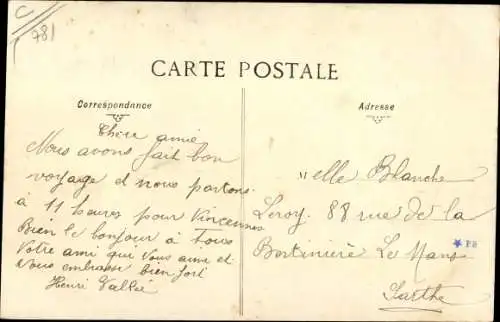 C
781
CARTE POSTALE
Correspondance
Adresse
Chère amie
Nous avons fait bon
voyage et nous partons
à 11 heures pour Vincennes
Bien le bonjour à Tous
Votre ami qui vous aime et
vous embrasse bien fort
Henri Vallée
Melle Blanche
Leroy 88 rue de la
Bertinière Le Mans
Sarthe